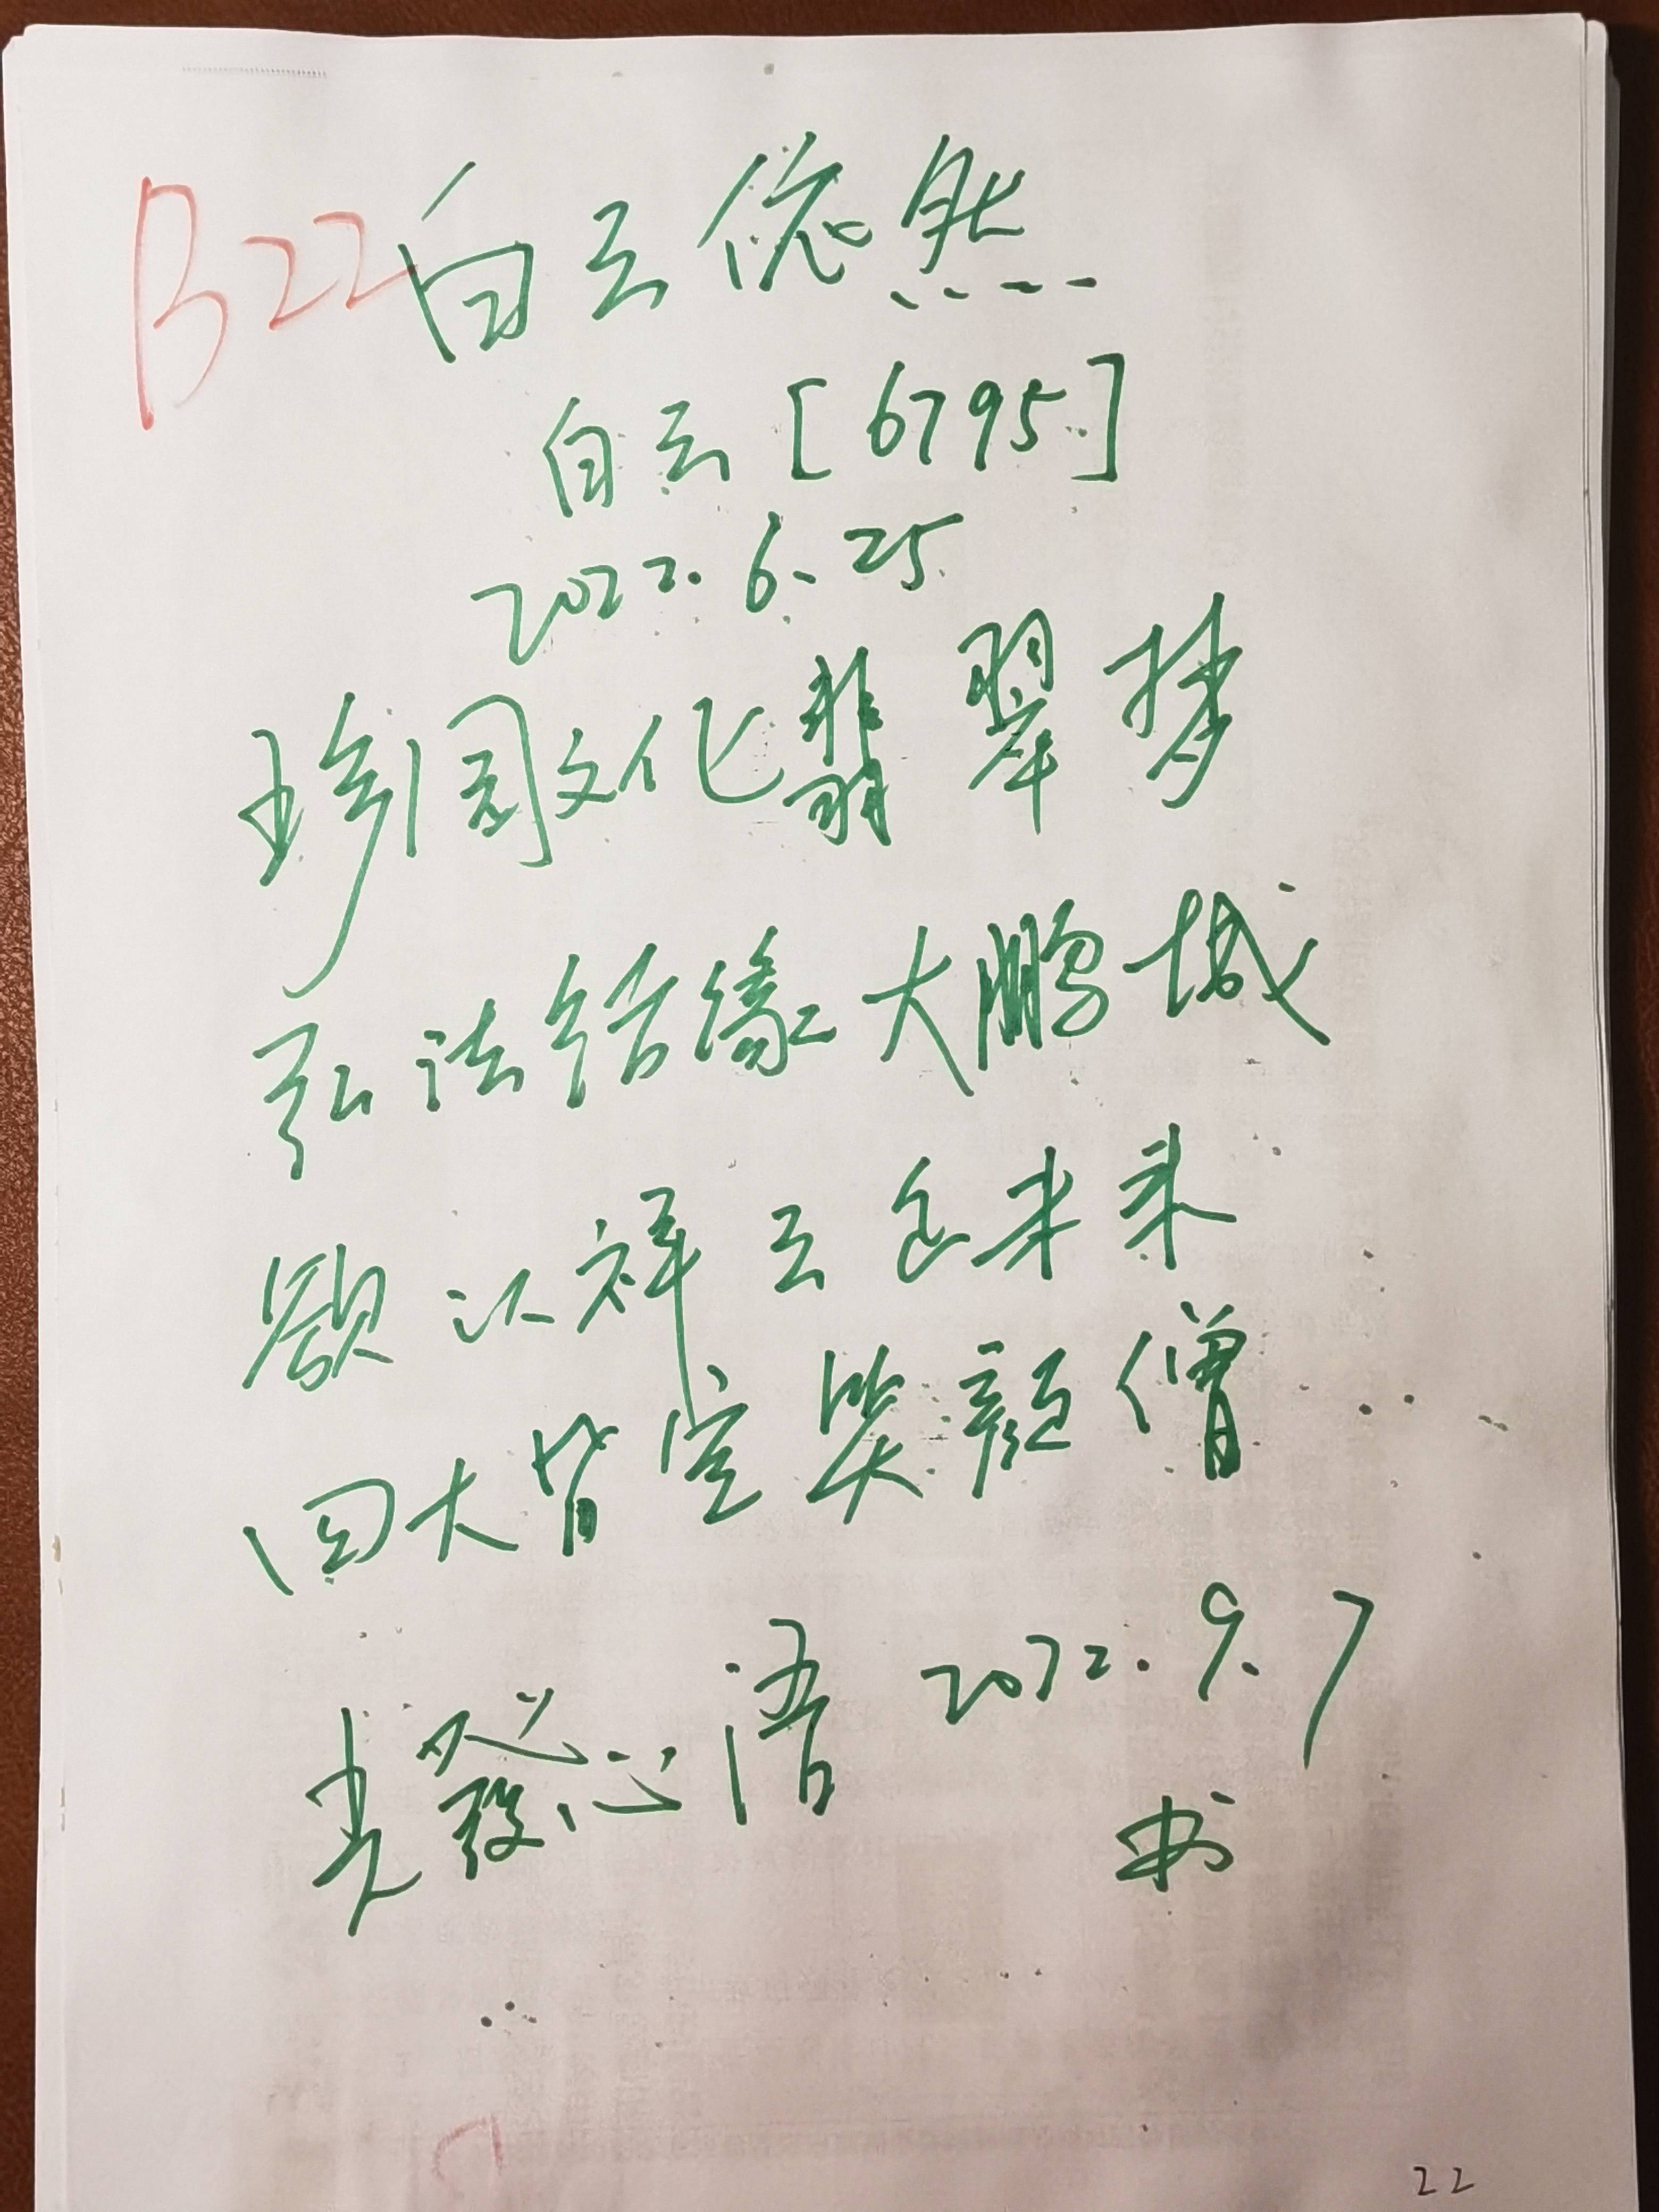 B22 白云依然
白云[6795]
2022.6.25
珍阁文化翡翠梦
弘法结缘大鹏城
欲以祥云包未来
四大皆空笑颜僧
发心语 2022.9.7
书
22